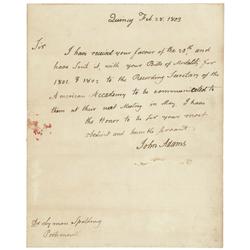 Quincy Feb. 28. 1803
Sir
I have received your favour of the 20th and
have sent it, with your Bills of Mortality for
1801 & 1802 to the Recording Secretary of the
American Accademy to be communicated to
them at their next Meeting in May. I have
the Honor to be Sir your most
obedient and humble servant
John Adams
Dr Lyman Spalding
Portsmouth